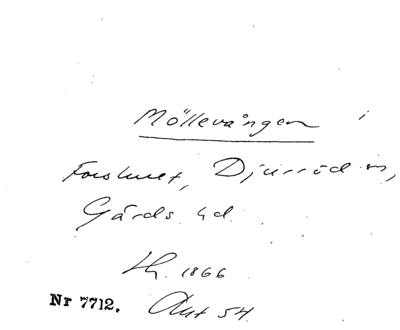 Möllevången i
Forshuset, Djurröd sn,
Gärds hd.
1866
Nr 7712. Akt 54.